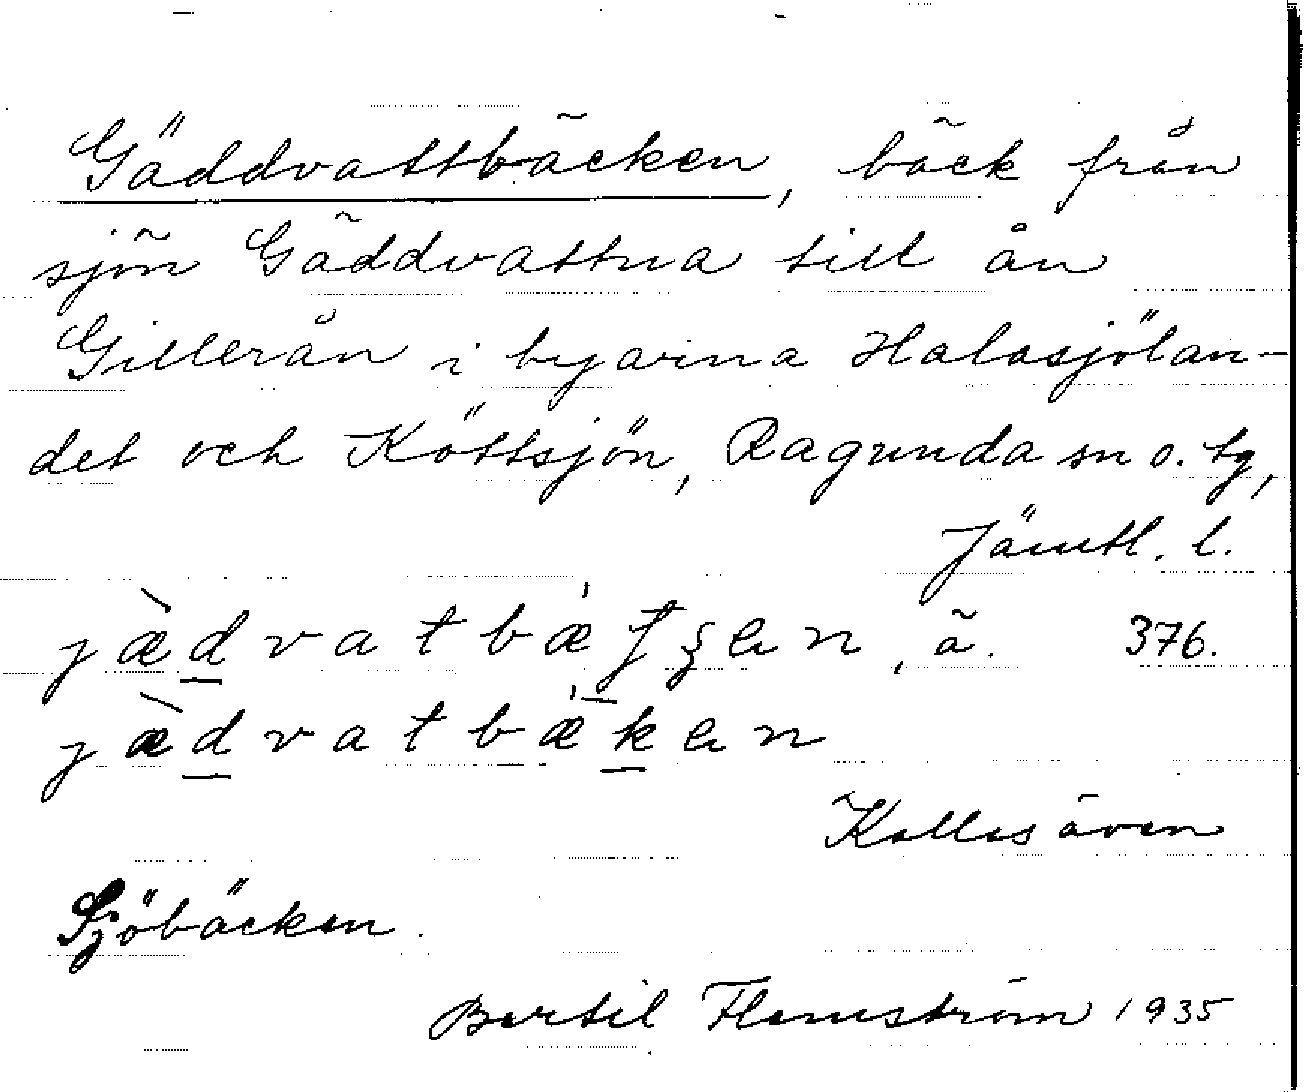 Gäddvattbäcken, bäck från
sjön Gäddvattna till ån
Gillerån i byarna Halasjölan-
det och Köttsjön, Ragunda sn o. tg,
Jämtl. l.
jæ̀dvatbæ̍tʂen, ä. 376.
jæ̀dvatbæ̍ken
Kallas även
Sjöbäcken.
Bertil Flemström 1935